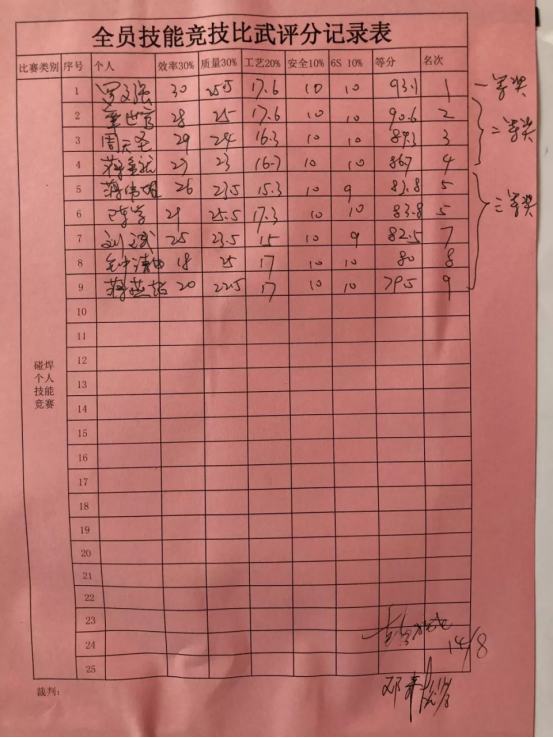 全员技能竞技比武评分记录表
比赛类别 序号 个人 效率30% 质量30% 工艺20% 安全10% 6S 10% 等分 名次
1 30 25.5 17.6 10 10 93.1 1 一等奖
2 28 25 17.6 10 10 90.6 2
3 29 24 16.3 10 10 89.3 3 二等奖
4 27 23 16.7 10 10 86.7 4
5 26 23.5 15.3 10 9 83.8 5
6 21 25.5 17.3 10 10 83.8 5 三等奖
7 刘斌 25 23.5 15 10 9 82.5 7
8 18 25 17 10 10 80 8
9 20 22.5 17 10 10 79.5 9
10
11
碰焊 12
个人 13
技能 14
竞赛
15
16
17
18
19
20
21
22
23
24 14/8
25
裁判: